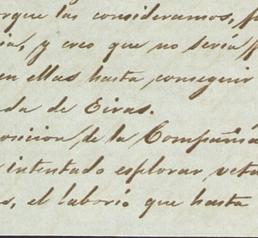 orque las consideramos, p
sa, y creo que no seria p
en ellas hasta conseguir
da de Eiras.
posicion, de la Compañia
intentado esplorar veta
s, el laborio que hasta